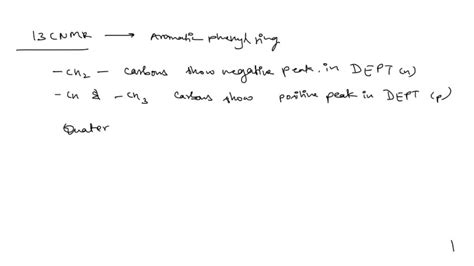 13CNMR → Aromatic phenyl ring
-CH2 - carbons show negative peak. in DEPT (n)
-CH & -CH3 carbons show positive peak in DEPT (p)
Quater
1